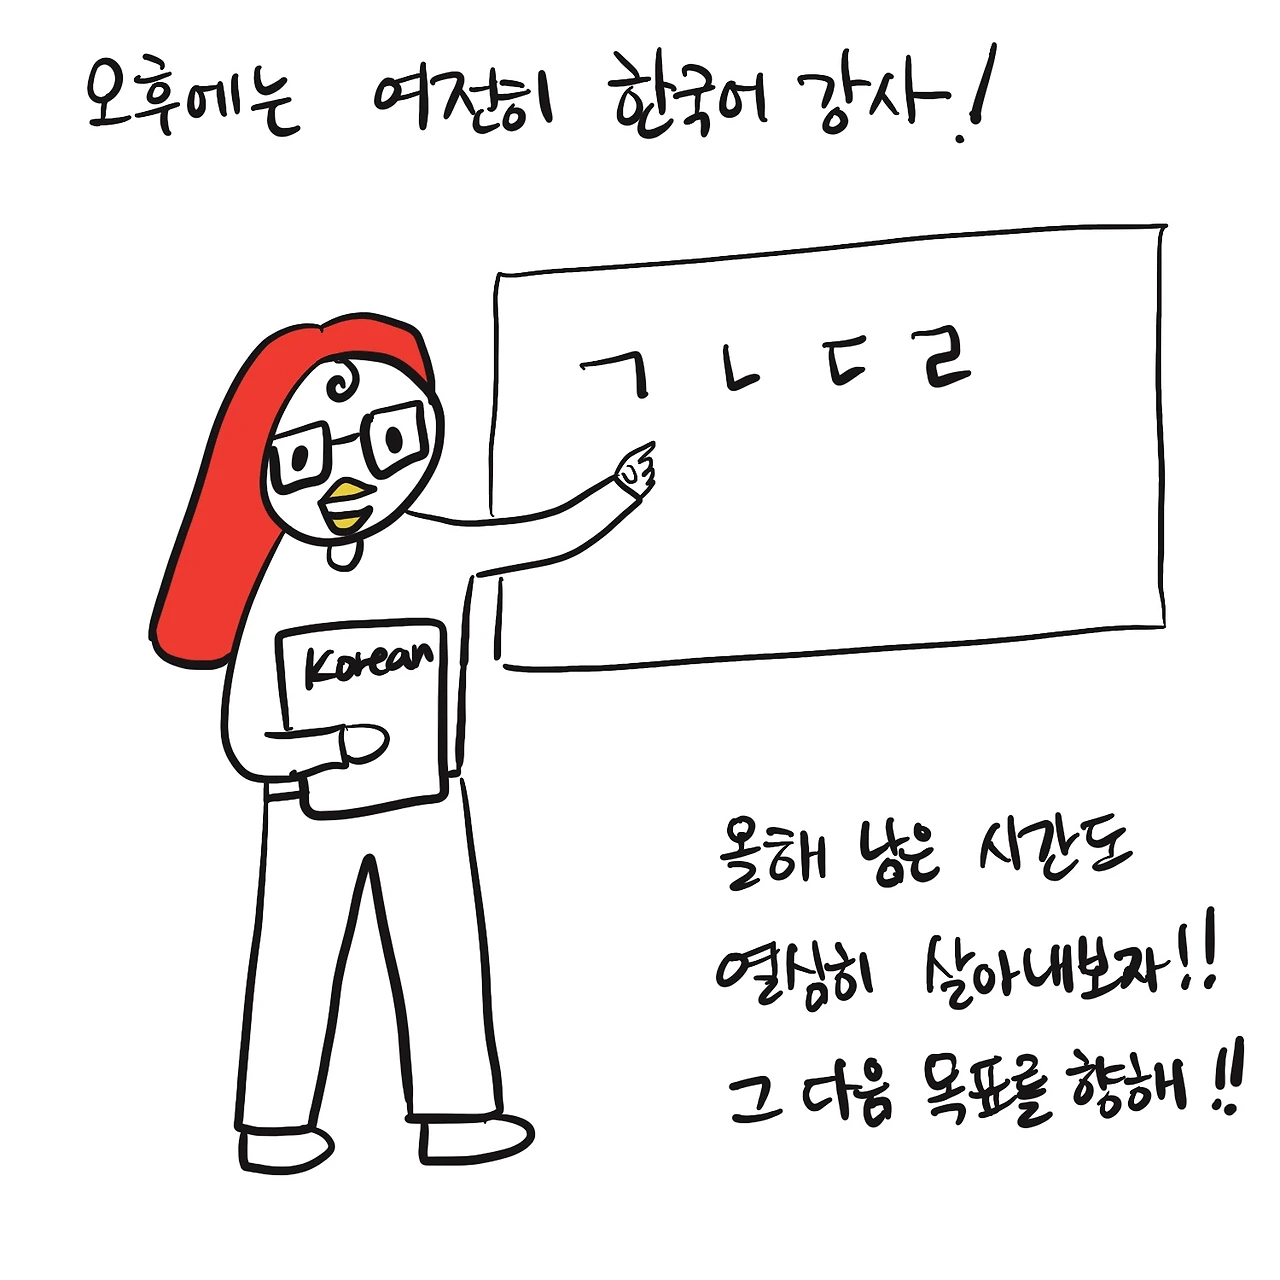 오후에는 여전히 한국어 강사!
ㄱ ㄴ ㄷ ㄹ
Korean
올해 남은 시간도
열심히 살아내보자!!
그 다음 목표를 향해!!